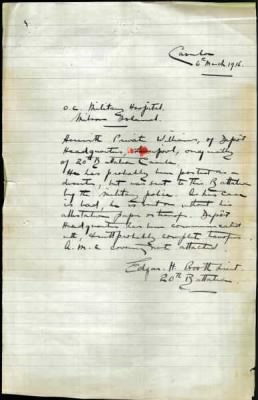 Casula
6th March 1916.
O.C. Military Hospital.
Milson Island.
Herewith Private Williams, of Depôt
Headquarters, Liverpool, on
of 20th Battalion Casula.
He has probably been posted as a
deserter, but was sent to the Battalion
by the military police. As his case
is bad, he is sent on without his
attestation paper or transfer. Depôt
Headquarters has been communicated
with, & will probably complete transfer.
A.M.C. covering note attached.
Edgar. H. Booth Lieut.
20th Battalion